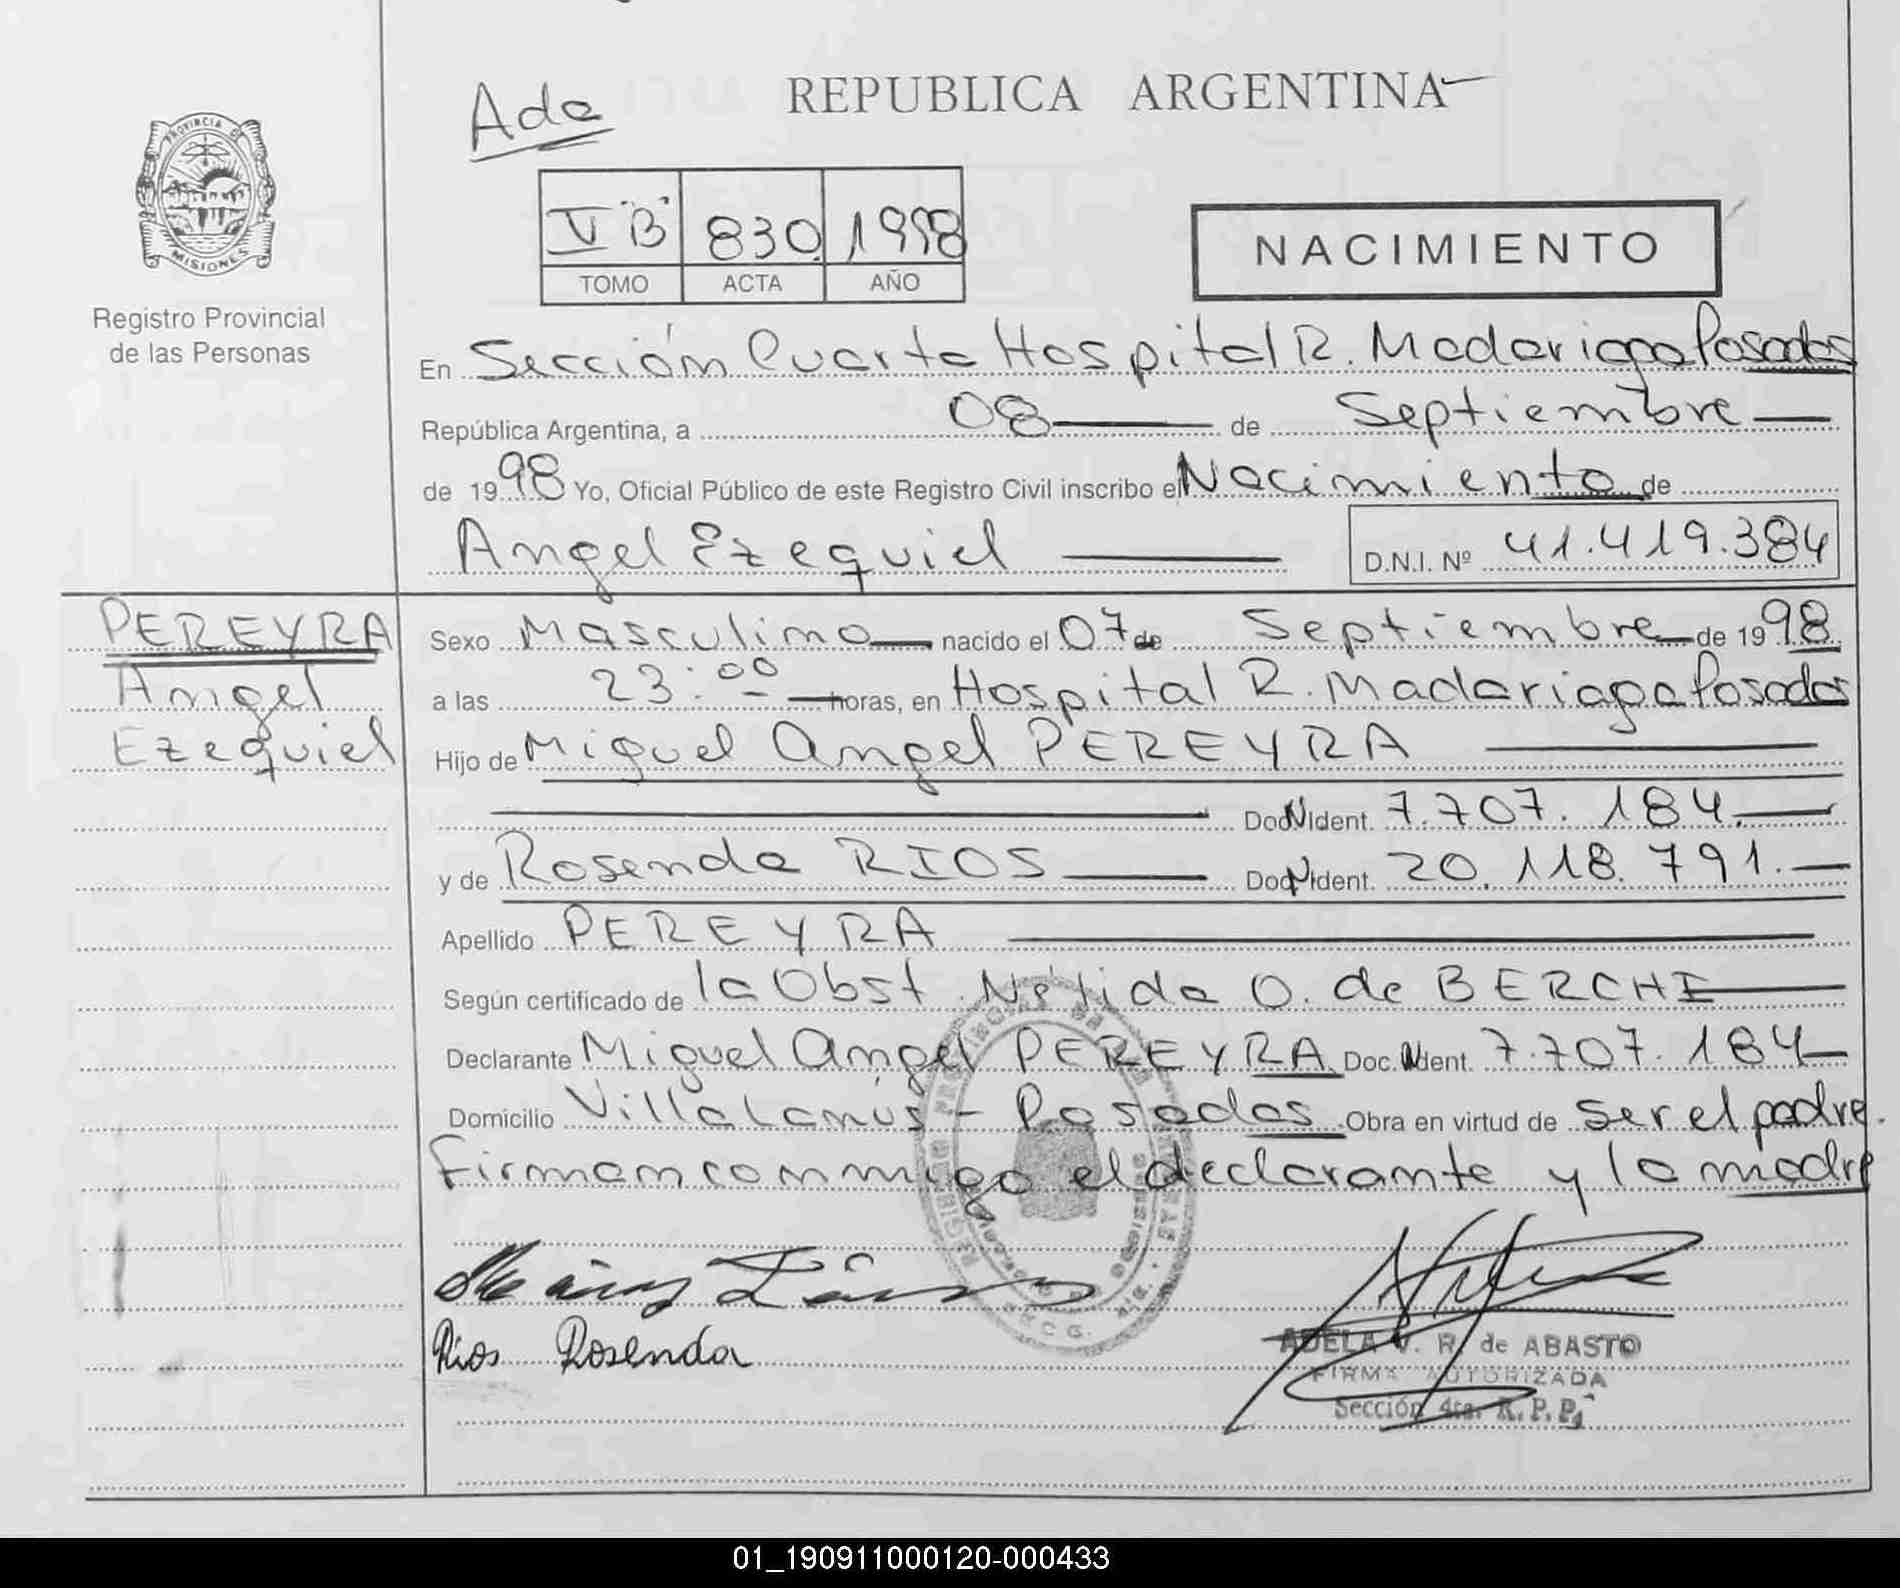 Ada
REPUBLICA ARGENTINA
PROVINCIA D
MISIONES
Registro Provincial
de las Personas
V "B" 830 1998
TOMO ACTA AÑO
NACIMIENTO
En Sección Cuarta Hospital R. Madariaga Posadas
República Argentina, a 08 de Septiembre
de 1998 Yo, Oficial Público de este Registro Civil inscribo el Nacimiento de
Angel Ezequiel D.N.I. Nº 41.419.384
PEREYRA
Angel
Ezequiel
Sexo Masculino nacido el 07 de Septiembre de 1998
a las 23:00 horas, en Hospital R. Madariaga Posadas
Hijo de Miguel Angel PEREYRA
Doc. Ident. 7.707.184.
y de Rosenda RIOS Doc. Ident. 20.118.791.
Apellido PEREYRA
Según certificado de la Obst. Nélida O. de BERCHI
Declarante Miguel Angel PEREYRA Doc. Ident. 7.707.184
Domicilio Villa Lanús - Posadas Obra en virtud de ser el padre.
Firman conmigo el declarante y la madre
Rios Rosenda
ADELA V. R. de ABASTO
FIRMA AUTORIZADA
Sección 4ta. R. P. P.
01_190911000120-000433